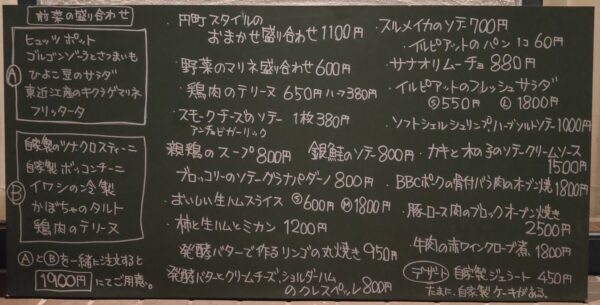 前菜の盛り合わせ
Ⓐ
ヒュッツポット
ゴルゴンゾーラとさつまいも
ひよこ豆のサラダ
東近江産のキクラゲマリネ
フリッタータ
Ⓑ
自家製のツナクロスティーニ
自家製ボッコンチーニ
イワシの冷製
かぼちゃのタルト
鶏肉のテリーヌ
ⒶとⒷを一緒に注文すると
1900円にてご用意。
・円町スタイルの
おまかせ盛り合わせ 1100円
・野菜のマリネ盛り合わせ 600円
・鶏肉のテリーヌ 650円 ハーフ380円
・スモークチーズのソテー 1枚380円
アンチョビガーリック
親鶏のスープ 800円 銀鮭のソテー 800円
ブロッコリーのソテーグラナパダーノ 800円
・おいしい生ハムスライス Ⓢ600円 Ⓜ1800円
・柿と生ハムとミカン 1200円
発酵バターで作るリンゴの丸焼き 950円
発酵バターとクリームチーズ、ショルダーハム
のクレスペッレ 800円
・スルメイカのソテー 700円
・イルピアットのパン 1コ 60円
・サナオリムーチョ 880円
・イルピアットのフレッシュサラダ
Ⓢ550円 Ⓛ1800円
・ソフトシェルシュリンプ、ハーブソルトソテー 1000円
・カキと木の子のソテークリームソース
1500円
・BBCポークの骨付バラ肉のオーブン焼 1800円
・豚ロース肉のブロックオーブン焼き
2500円
・牛肉の赤ワインクローブ煮 1800円
デザート 自家製ジェラート 450円
たまに、自家製ケーキがある。